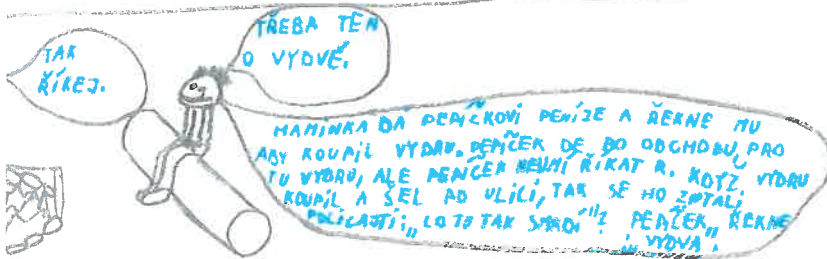 TAK
ŘÍKEJ.
TŘEBA TEN
O VYDVĚ.
MAMINKA DÁ PEPÍČKOVI PENÍZE A ŘEKNE MU
ABY KOUPIL VYDRU. PEPÍČEK DE DO OBCHODU, PRO
TU VYDRU, ALE PEPÍČEK NEUMÍ ŘÍKAT R. KDYŽ VYDRU
KOUPIL A ŠEL PO ULICI, TAK SE HO ZPTALI
POLICAJTI: „CO TO TAK SMRDÍ"? PEPÍČEK ŘEKNE
„VYDVA.